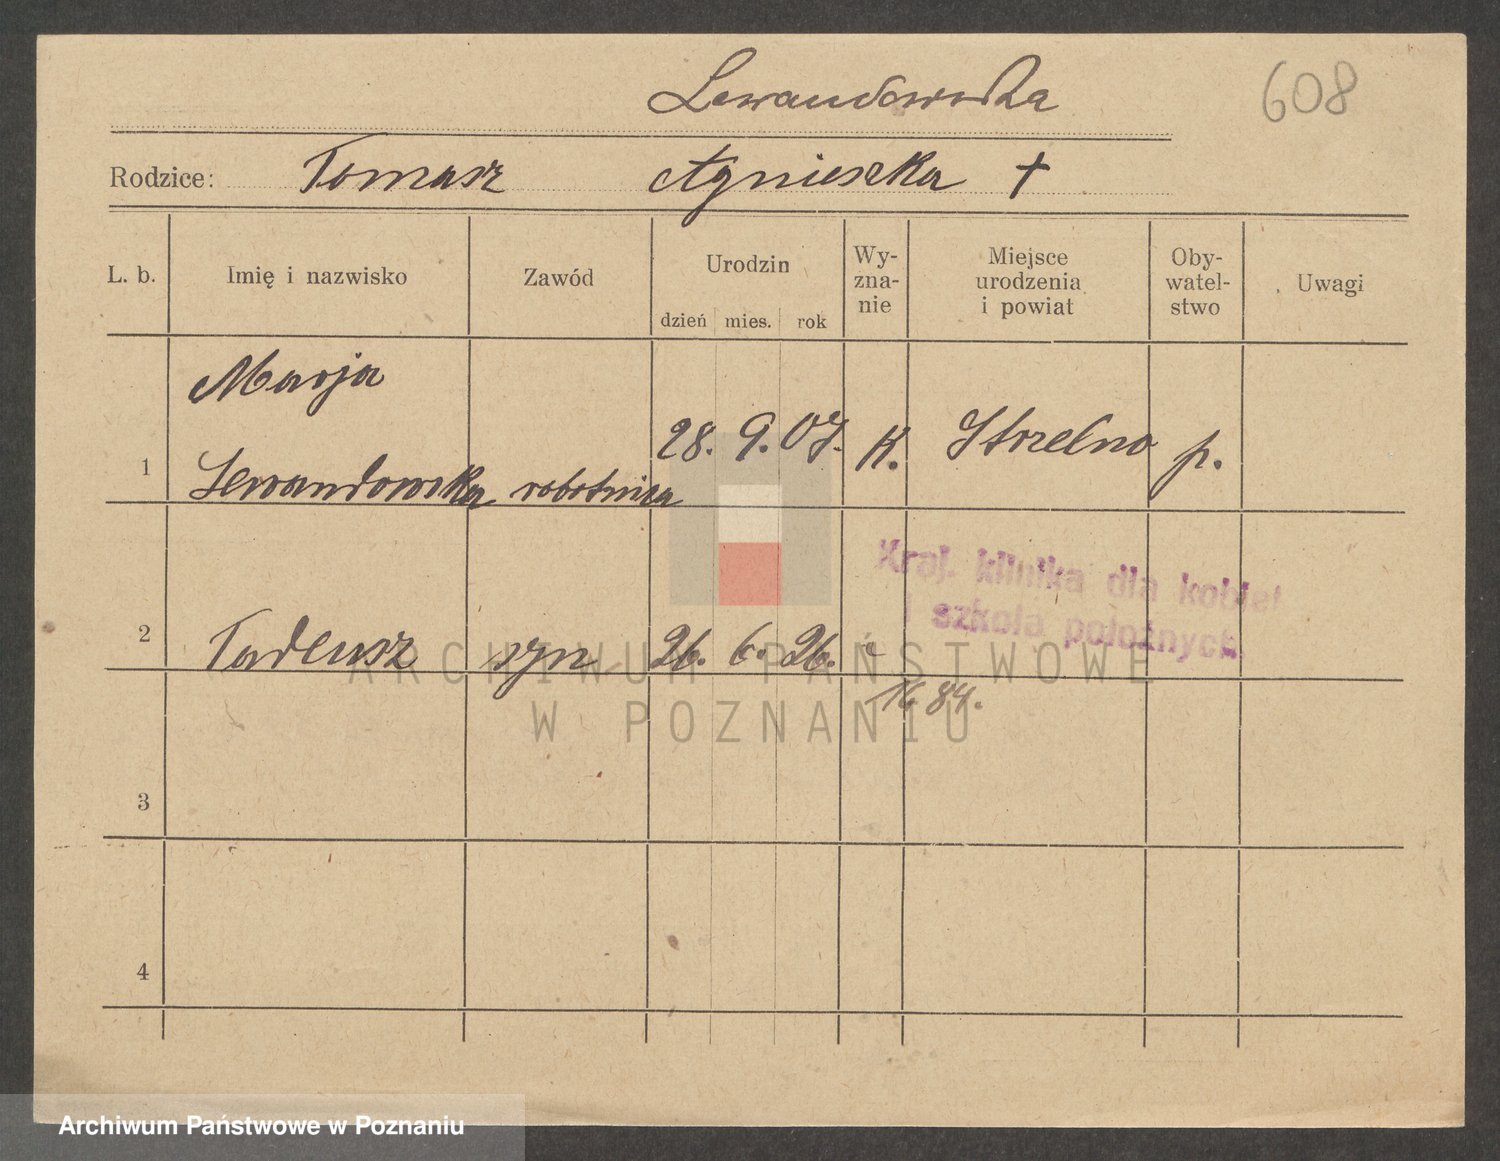 Lewandowska
608
Rodzice: Tomasz Agnieszka †
L. b. Imię i nazwisko Zawód Urodzin dzień mies. rok Wy-zna-nie Miejsce urodzenia i powiat Oby-watel-stwo Uwagi
Marja
1 Lewandowska robotnica 28. 9. 07. K. Strzelno p.
Kraj. klinika dla kobiet
i szkoła położnych
2 Tadeusz syn 26. 6. 26.
ARCHIWUM PAŃSTWOWE
W POZNANIU
3
4
Archiwum Państwowe w Poznaniu